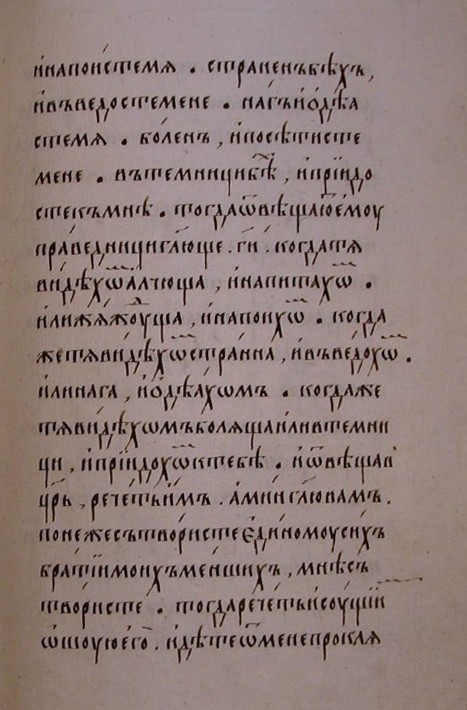 и напоистемѧ . страненъ бѣхъ,
и въведостемене . нагъ и ѻдѣꙗ
стемѧ . боленъ , и посѣтисте
мене . въ темници бѣ , и прїидо
сте къ мнѣ . тогда ѿвѣщаю емоу
праведници глюще . ги . когда тѧ
видѣхѡ алчюща , и напитахѡ .
или жѧжоуща , и напоихѡ . когда
же тѧ видѣхѡ странна , и въведохѡ .
или нага , и ѻдѣꙗхѡмъ . когда же
тѧ видѣхѡмъ болѧща или в темни
ци , и прїидохѡ к тебѣ . и ѿвѣщав
црь , речетъ имъ . аминь глю вамъ .
понеже сътвористе единомоу сих
братїи моихъ меншихъ , мнѣ съ
твористе . тогда речетъ и соущїи
ѡшоуюего . идѣте ѿ мене проклѧ